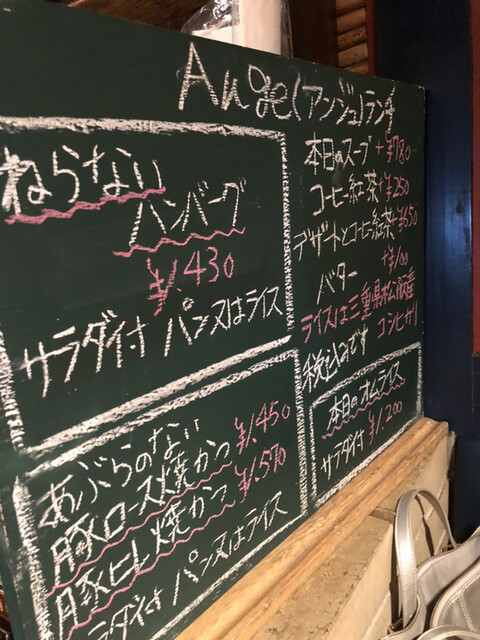 Auge(アンジュ)ランチ
ねらない
ハンバーグ
¥1,430
サラダ付 パン又はライス
あぶらのない
豚ロース焼かつ ¥1,450
豚ヒレ焼かつ ¥1,570
サラダ付 パン又はライス
本日のスープ +¥780
コーヒー紅茶+¥250
デザートとコーヒー紅茶+¥650
バター +¥100
ライスは三重県松阪産
コシヒカリ
税込みです
本日のオムライス
サラダ付 ¥1,200